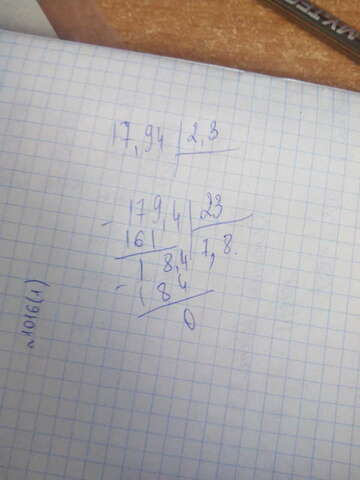 17,94 2,3
- 179,4 23
161 7,8.
18,4
- 184
0
№1016(1)